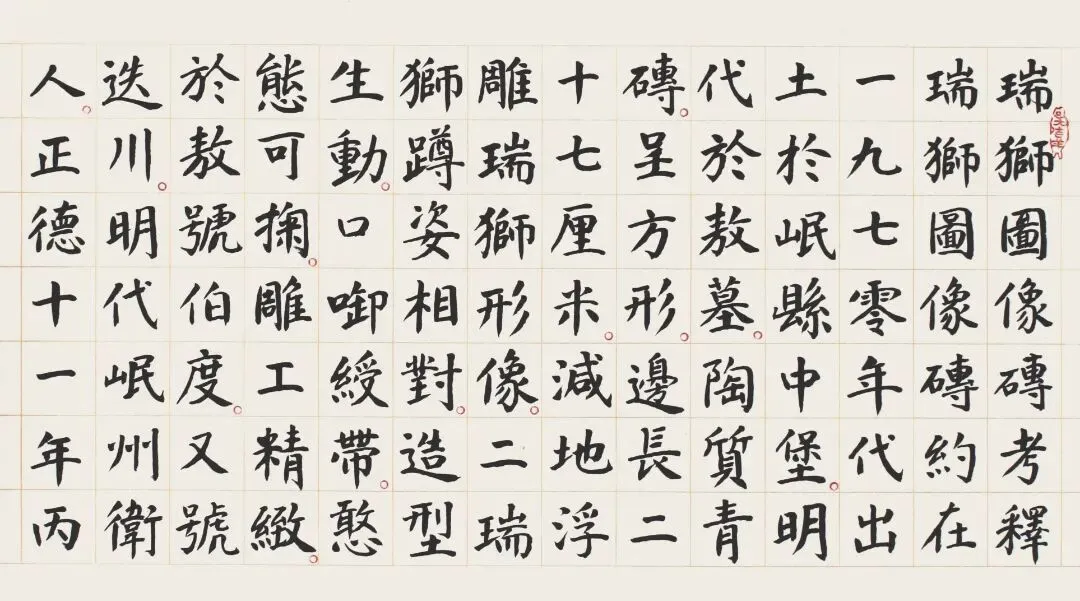 瑞獅圖像磚考釋
瑞獅圖像磚約在
一九七零年代出
土於岷縣中堡明
代於敖墓陶質青
磚呈方形邊長二
十七厘米減地浮
雕瑞獅形像二瑞
獅蹲姿相對造型
生動口啣綬帶憨
態可掬雕工精緻
於敖號伯度又號
迭川明代岷州衛
人正德十一年丙